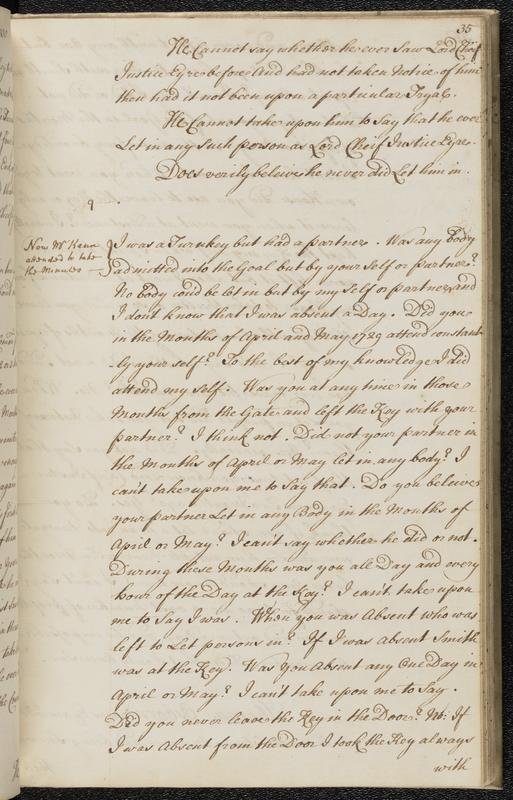 35
He Cannot say whether he ever Saw Lord Cheif
Justice Eyre before And had not taken Notice of him
then had it not been upon a particular Tryal.
He Cannot take upon him to Say that he ever
Let in any Such person as Lord Cheif Justice Eyre.
Does verily beleive he never did Let him in.
Now Mr Kenn
attended to take
the Minutes
I was a Turnkey but had a partner. Was any Body
admitted into the Goal but by your Self or partner?
No body coud be let in but by my Self or partner, and
I don't know that I was absent a Day. Did you
in the Months of April and May 1729 attend constant-
-ly your self? To the best of my knowledge I did
attend my self. Was you at any time in those
Months from the Gate and left the Key with your
partner? I think not. Did not your partner in
the Months of April or May let in any body? I
can't take upon me to Say that. Do you beleive
your partner Let in any Body in the Months of
April or May? I can't say whether he did or not.
During these Months was you all Day and every
hour of the Day at the Key? I can't take upon
me to Say I was. When you was Absent who was
left to Let persons in? If I was Absent Smith
was at the Key. Was you Absent any One Day in
April or May? I can't take upon me to Say.
Did you never leave the Key in the Door? No: If
I was Absent from the Door I took the Key always
with